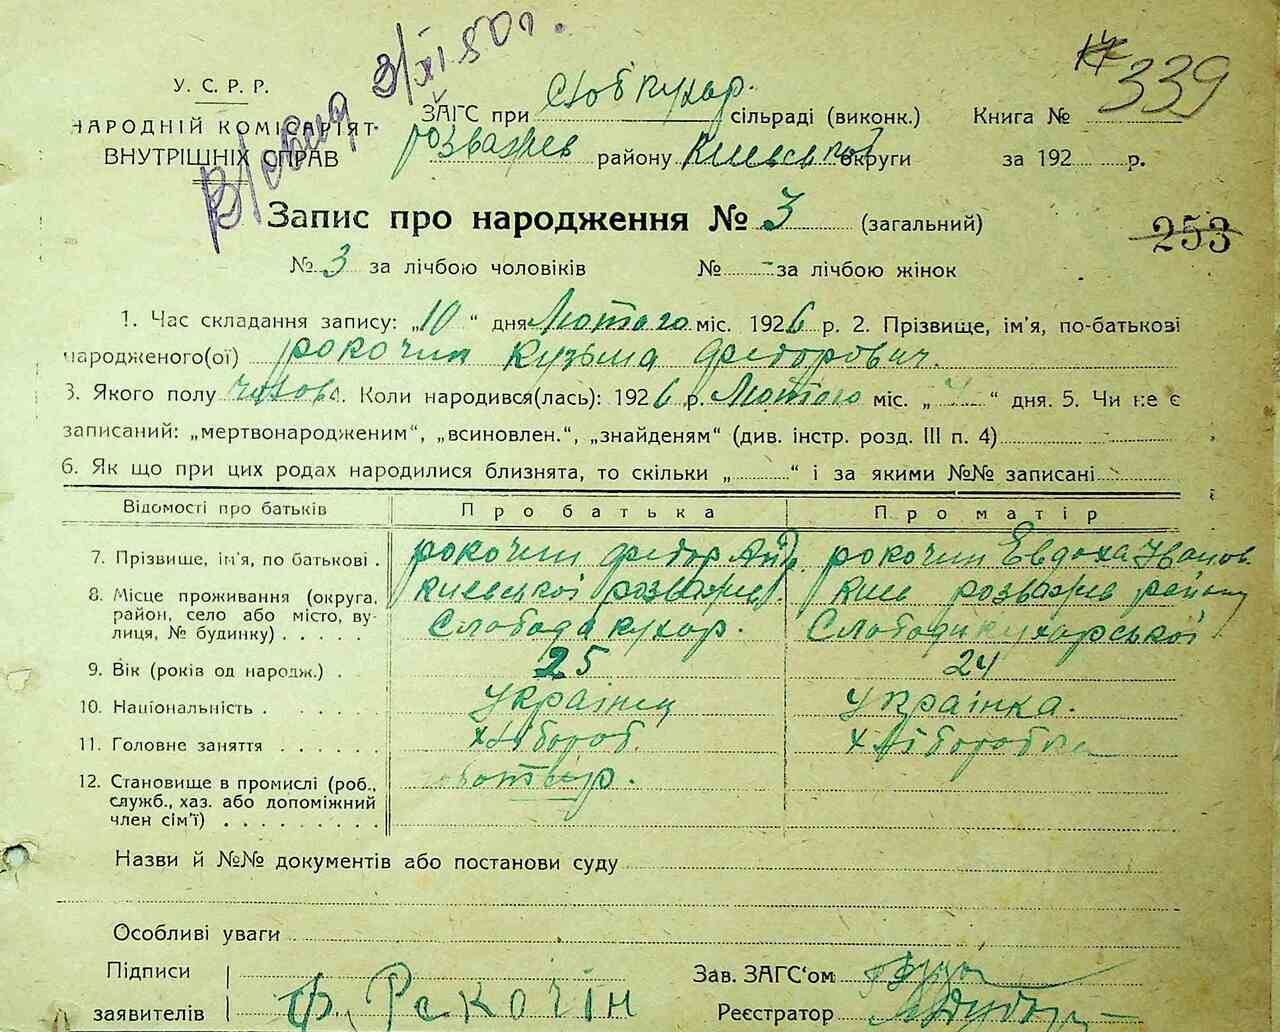 3/XI 50 г.
339
У. С. Р. Р.
НАРОДНІЙ КОМІСАРІЯТ
ВНУТРІШНІХ СПРАВ
ЗАГС при Слоб Кухар. сільраді (виконк.) Книга №
Розважев району Киевської округи за 192 р.
Запис про народження № 3 (загальний)
253
№ 3 за лічбою чоловіків № - за лічбою жінок
1. Час складання запису: „10“ дня Лютого міс. 1926 р. 2. Прізвище, ім'я, по-батькові
народженого(ої) Рокочин Кузьма Федорович.
3. Якого полу чолов 4. Коли народився(лась): 1926 р. Лютого міс. „ “ дня. 5. Чи не є
записаний: „мертвонародженим“, „всиновлен.“, „знайденям“ (див. інстр. розд. III п. 4)
6. Як що при цих родах народилися близнята, то скільки „ “ і за якими №№ записані
Відомості про батьків Про батька Про матір
7. Прізвище, ім'я, по батькові . Рокочин Федор Анд. Рокочин Евдоха Іванов.
8. Місце проживання (округа, Киевської Розважев. Киев Розважев району
район, село або місто, ву- Слобода Кухар. Слободи Кухарської
лиця, № будинку) . . . . .
9. Вік (років од народж.) . 25 24
10. Національність . . . . . Українец Українка.
11. Головне заняття . . . . . . хлібороб. хліборобка
12. Становище в промислі (роб.,
служб., хаз. або допоміжний
член сім'ї) . . . . . . . . .
Назви й №№ документів або постанови суду
Особливі уваги
Підписи Зав. ЗАГС'ом
заявителів Ф. Рокочін Реєстратор